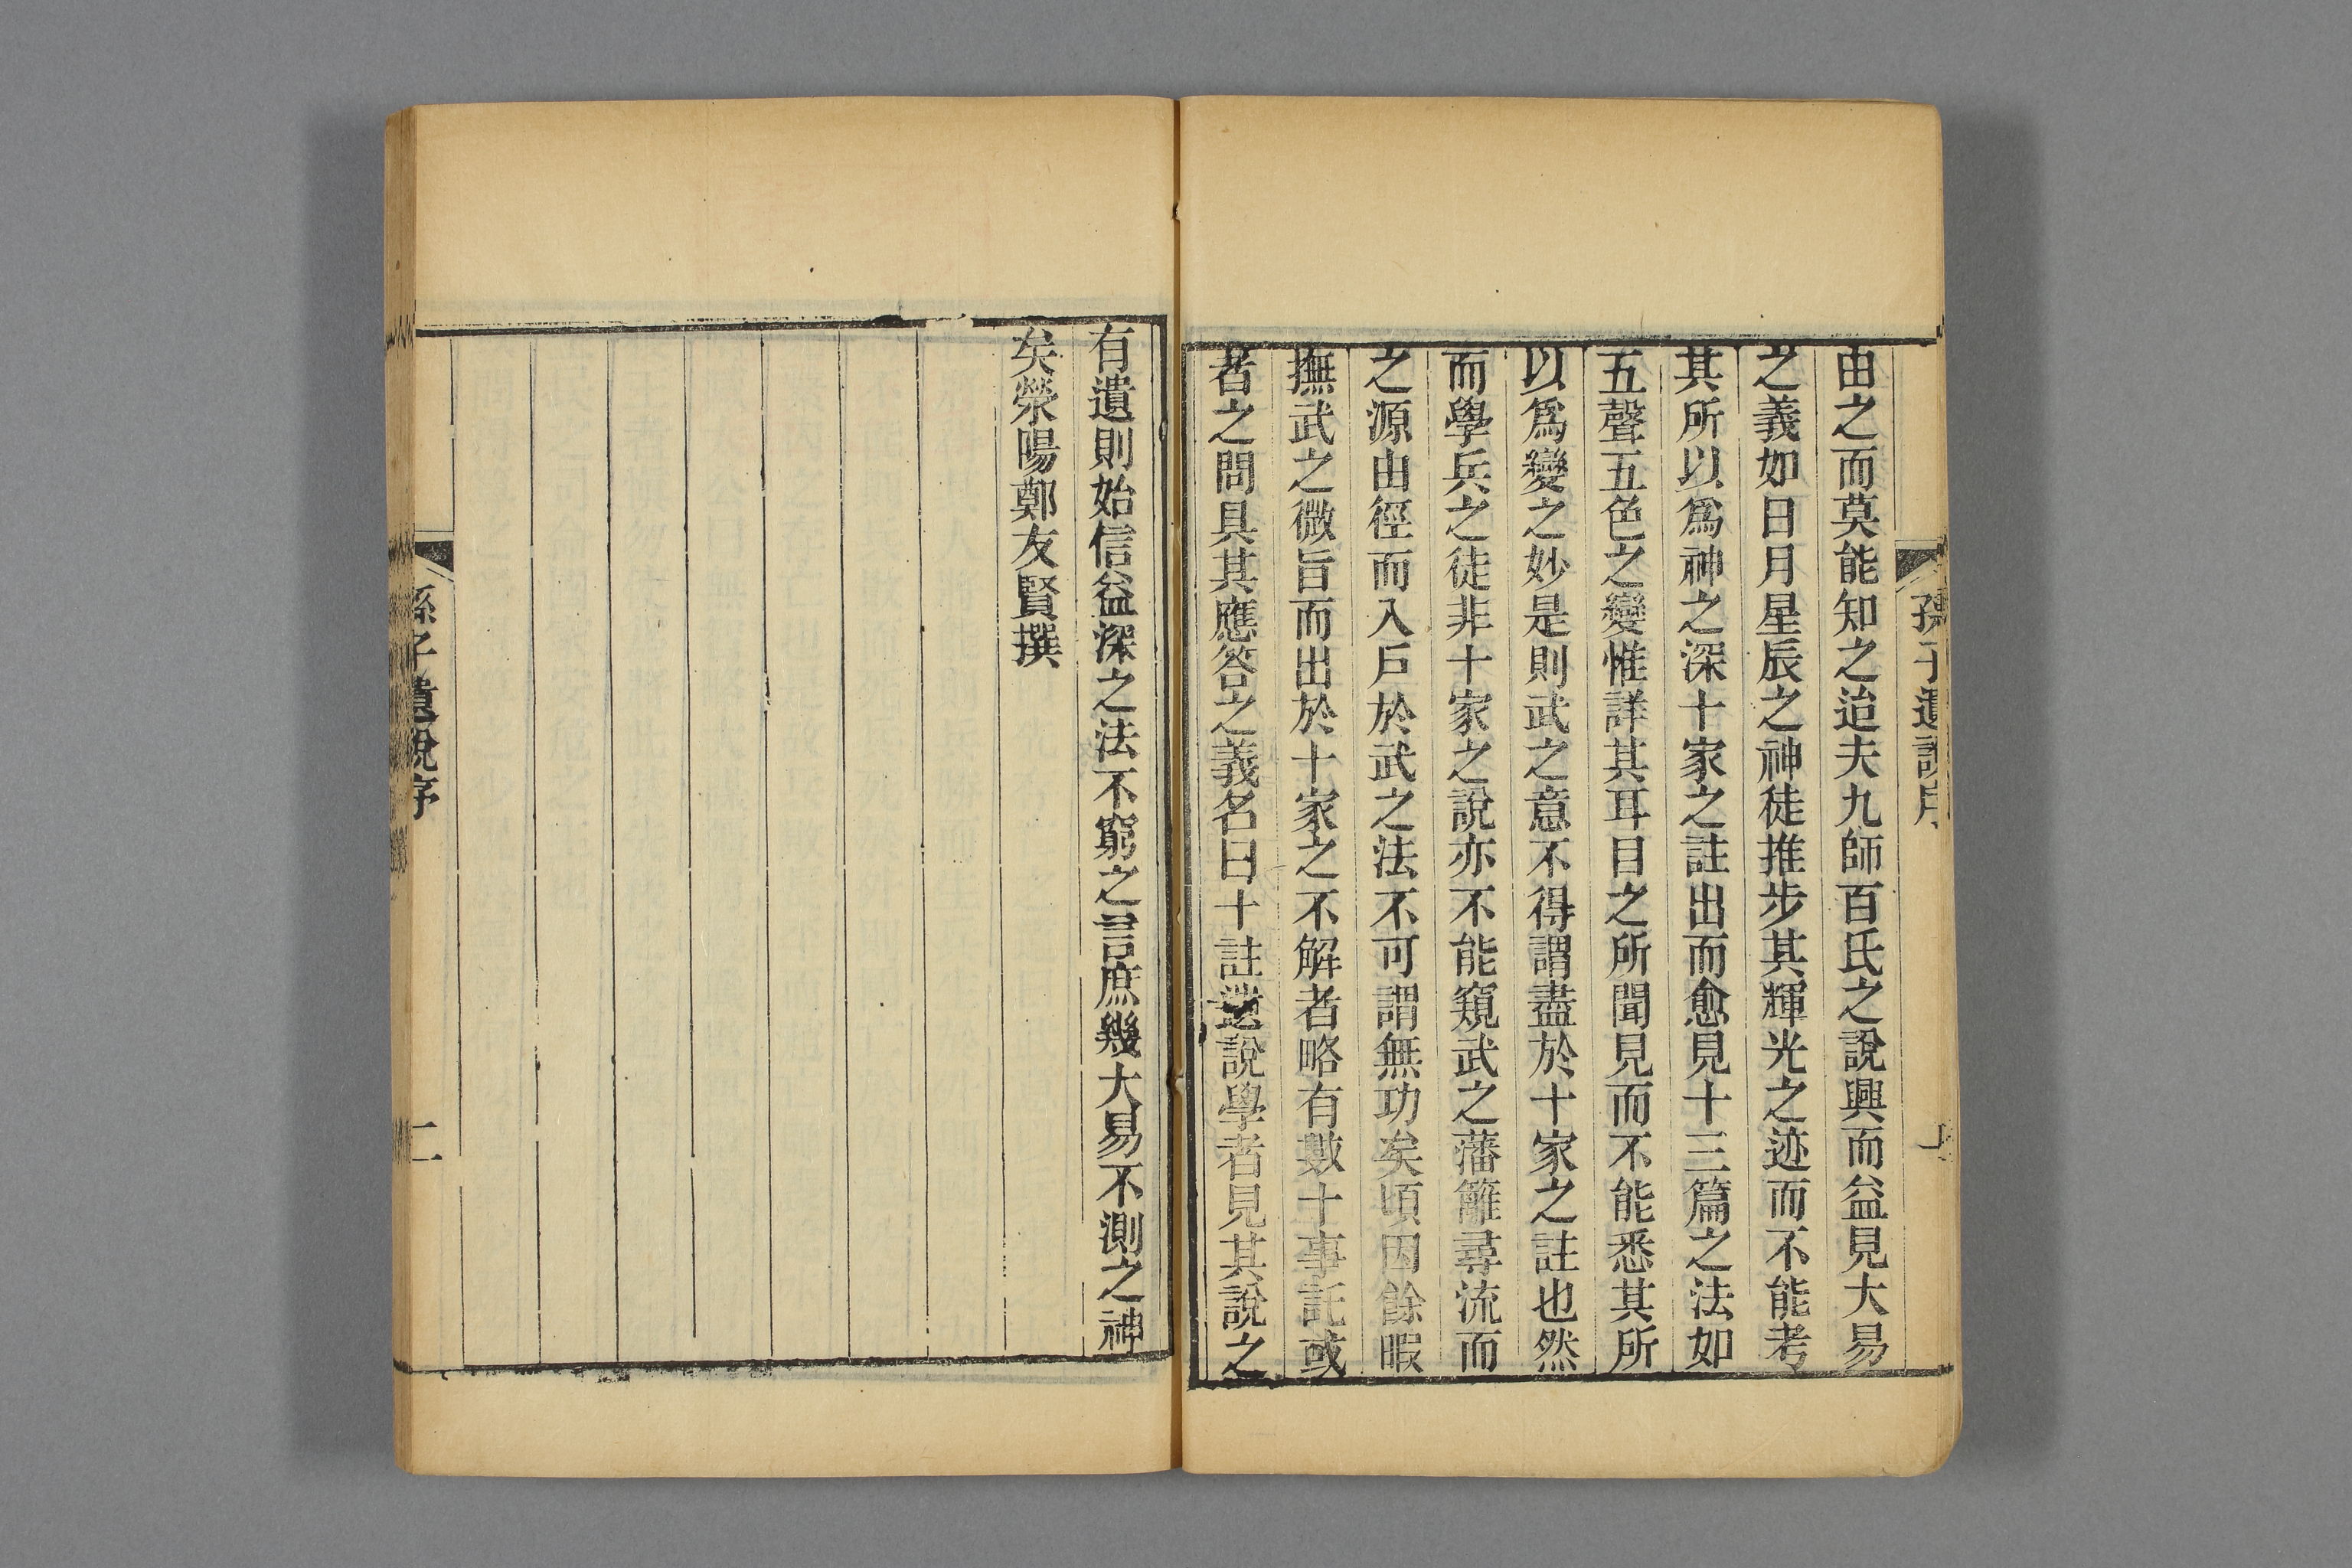 孫子遺說序
由之而莫能知之迨夫九師百氏之說興而益見大易
之義如日月星辰之神徒推步其輝光之迹而不能考
其所以為神之深十家之註出而愈見十三篇之法如
五聲五色之變惟詳其耳目之所聞見而不能悉其所
以為變之妙是則武之意不得謂盡於十家之註也然
而學兵之徒非十家之說亦不能窺武之藩籬尋流而
之源由徑而入戶於武之法不可謂無功矣頃因餘暇
撫武之微旨而出於十家之不解者略有數十事託或
者之問具其應答之義名曰十註遺說學者見其說之
有遺則始信益深之法不窮之言庶幾大易不測之神
矣滎陽鄭友賢撰
孫子遺說序
二